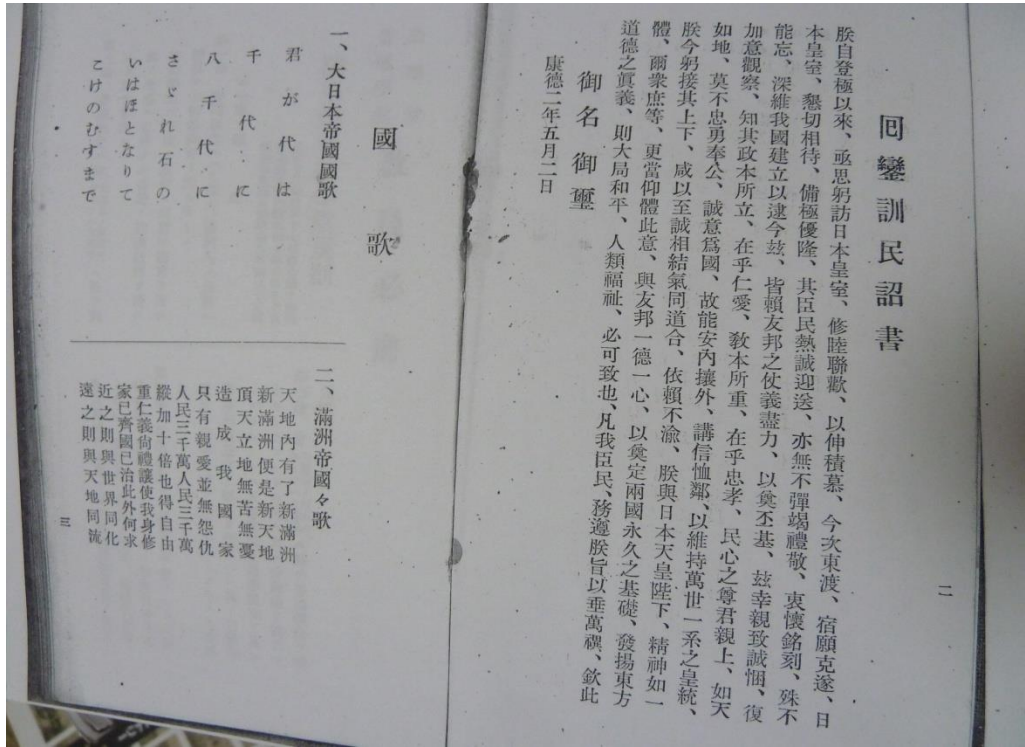 回鑾訓民詔書
朕自登極以來、亟思躬訪日本皇室、修睦聯歡、以伸積慕、今次東渡、宿願克遂、日
本皇室、懇切相待、備極優隆、其臣民熱誠迎送、亦無不彈竭禮敬、衷懷銘刻、殊不
能忘、深維我國建立以逮今玆、皆賴友邦之仗義盡力、以奠丕基、玆幸親致誠悃、復
加意觀察、知其政本所立、在乎仁愛、敎本所重、在乎忠孝、民心之尊君親上、如天
如地、莫不忠勇奉公、誠意爲國、故能安內攘外、講信恤鄰、以維持萬世一系之皇統、
朕今躬接其上下、咸以至誠相結氣同道合、依賴不渝、朕與日本天皇陛下、精神如一
體、爾衆庶等、更當仰體此意、與友邦一德一心、以奠定兩國永久之基礎、發揚東方
道德之眞義、則大局和平、人類福祉、必可致也、凡我臣民、務遵朕旨以垂萬禩、欽此
御名御璽
康德二年五月二日
二
國歌
一、大日本帝國國歌
君が代は
千代に
八千代に
さゞれ石の
いはほとなりて
こけのむすまで
二、滿洲帝國々歌
天地內有了新滿洲
新滿洲便是新天地
頂天立地無苦無憂
造成我國家
只有親愛並無怨仇
人民三千萬人民三千萬
縱加十倍也得自由
重仁義尙禮讓使我身修
家已齊國已治此外何求
近之則與世界同化
遠之則與天地同流
三